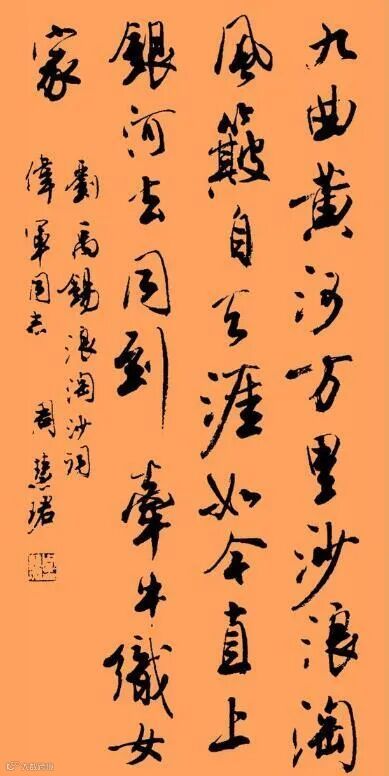 九曲黄河万里沙浪淘
風簸自天涯如今直上
銀河去同到牽牛織女
家
劉禹錫浪淘沙詞
偉軍同志 周慧珺